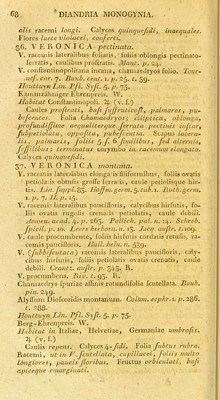 68 DIANDRIA MONOGYNIA.
alis racemi longi. Calyces quinquefidi, inaequales.
Flores laete violacei, conferti.
56. VERONICA pectinata.
V. racemis lateralibus foliatis, foliis oblongis pectinato-
ferratis, caulibus prostratis. Mant. p. 24.
V. constantinopolitana incana, chamaedryos folio. Tour-
nef. cor. 7. Buxb. cent. 1. p. 25. t. 39.
Houttuyn Lin. Pfl. Syst. 5. p. 75.
Kammähnlicher Ehrenpreis. W.
Habitat Constantinopoli. ♃ (v. f.)
Caulus prostrati, basi suffruticosi, palmares, pu-
bescentes. Folia Chamaedryos; elliptica, oblonga,
profundissime aequaliterque serrata pectinis instar,
subpetiolata, opposita, pubescentia. Scapus latera-
lis, palmaris, foliis 5 s. 6 similibus, sed alternis,
sessilibus; terminatus corymbo in racemum elongato.
Calyces quinquefidi.
57. VERONICA montana.
V. racemis lateralibus elongatis filiformibus, foliis ovatis
petiolatis obtusis grosse serratis, caule petiolisque hir-
tis. Lin. suppl. 83.
p. 7. H. p. 15.
V. racemis lateralibus paucifloris, calycibus hirsutis, fo-
liis ovatis rugosis crenatis petiolatis, caule debili.
Amoen. acad. 4. p. 263. Pollich. pal. n. 14. Schreb.
spicil. p. 10. Leers herborn. n. 15. Jacq. austr. t. 109.
V. caule procumbente, foliis hirsutis cordatis retusis, ra-
cemis paucifloris. Hall. helv. n. 539.
V. (subhirsuta) racemis lateralibus paucifloris, caly-
cibus hirsutis, foliis petiolatis ovatis crenatis, caule
debili. Crantz. austr. p. 348.
V. procumbens. Riv. t. 95.
Chamaedrys spuriae affinis rotundifolia scutellata. Bauh.
pin. 249.
Alyssum Dioscoridis montanum. Colum. ecphr. 1. p. 286.
t. 288.
Houttuyn Lin. Pfl. Syst. 5. p. 75.
Berg-Ehrenpreis. W.
Habitat in Italiae, Helvetiae, Germaniae umbrosis.
♃ (v. f.)
Caulis repens. Calyces 4-fidi. Folia subtus rubra.
Racemi, ut in V. scutellata, capillacei, foliis multo
longiores, paucis floribus. Fructus orbiculati, basi
apiceque emarginati.